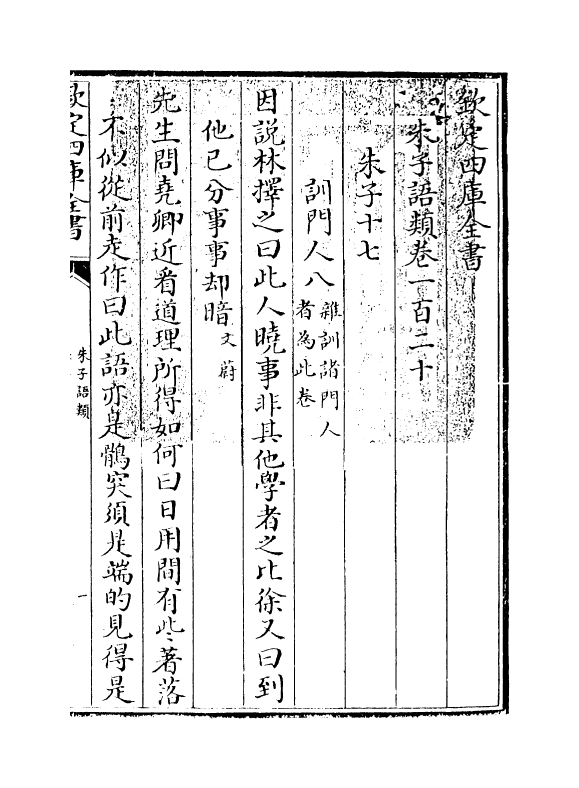 欽定四庫全書
朱子語類卷一百二十
朱子十七
訓門人八雜訓諸門人
者為此卷
因説林擇之曰此人曉事非其他學者之比徐又曰到
他已分事事却暗文蔚
先生問堯卿近看道理所得如何曰日用間有些著落
不似從前走作曰此語亦是鶻突須是端的見得是
欽定四庫全書
朱子語類
一